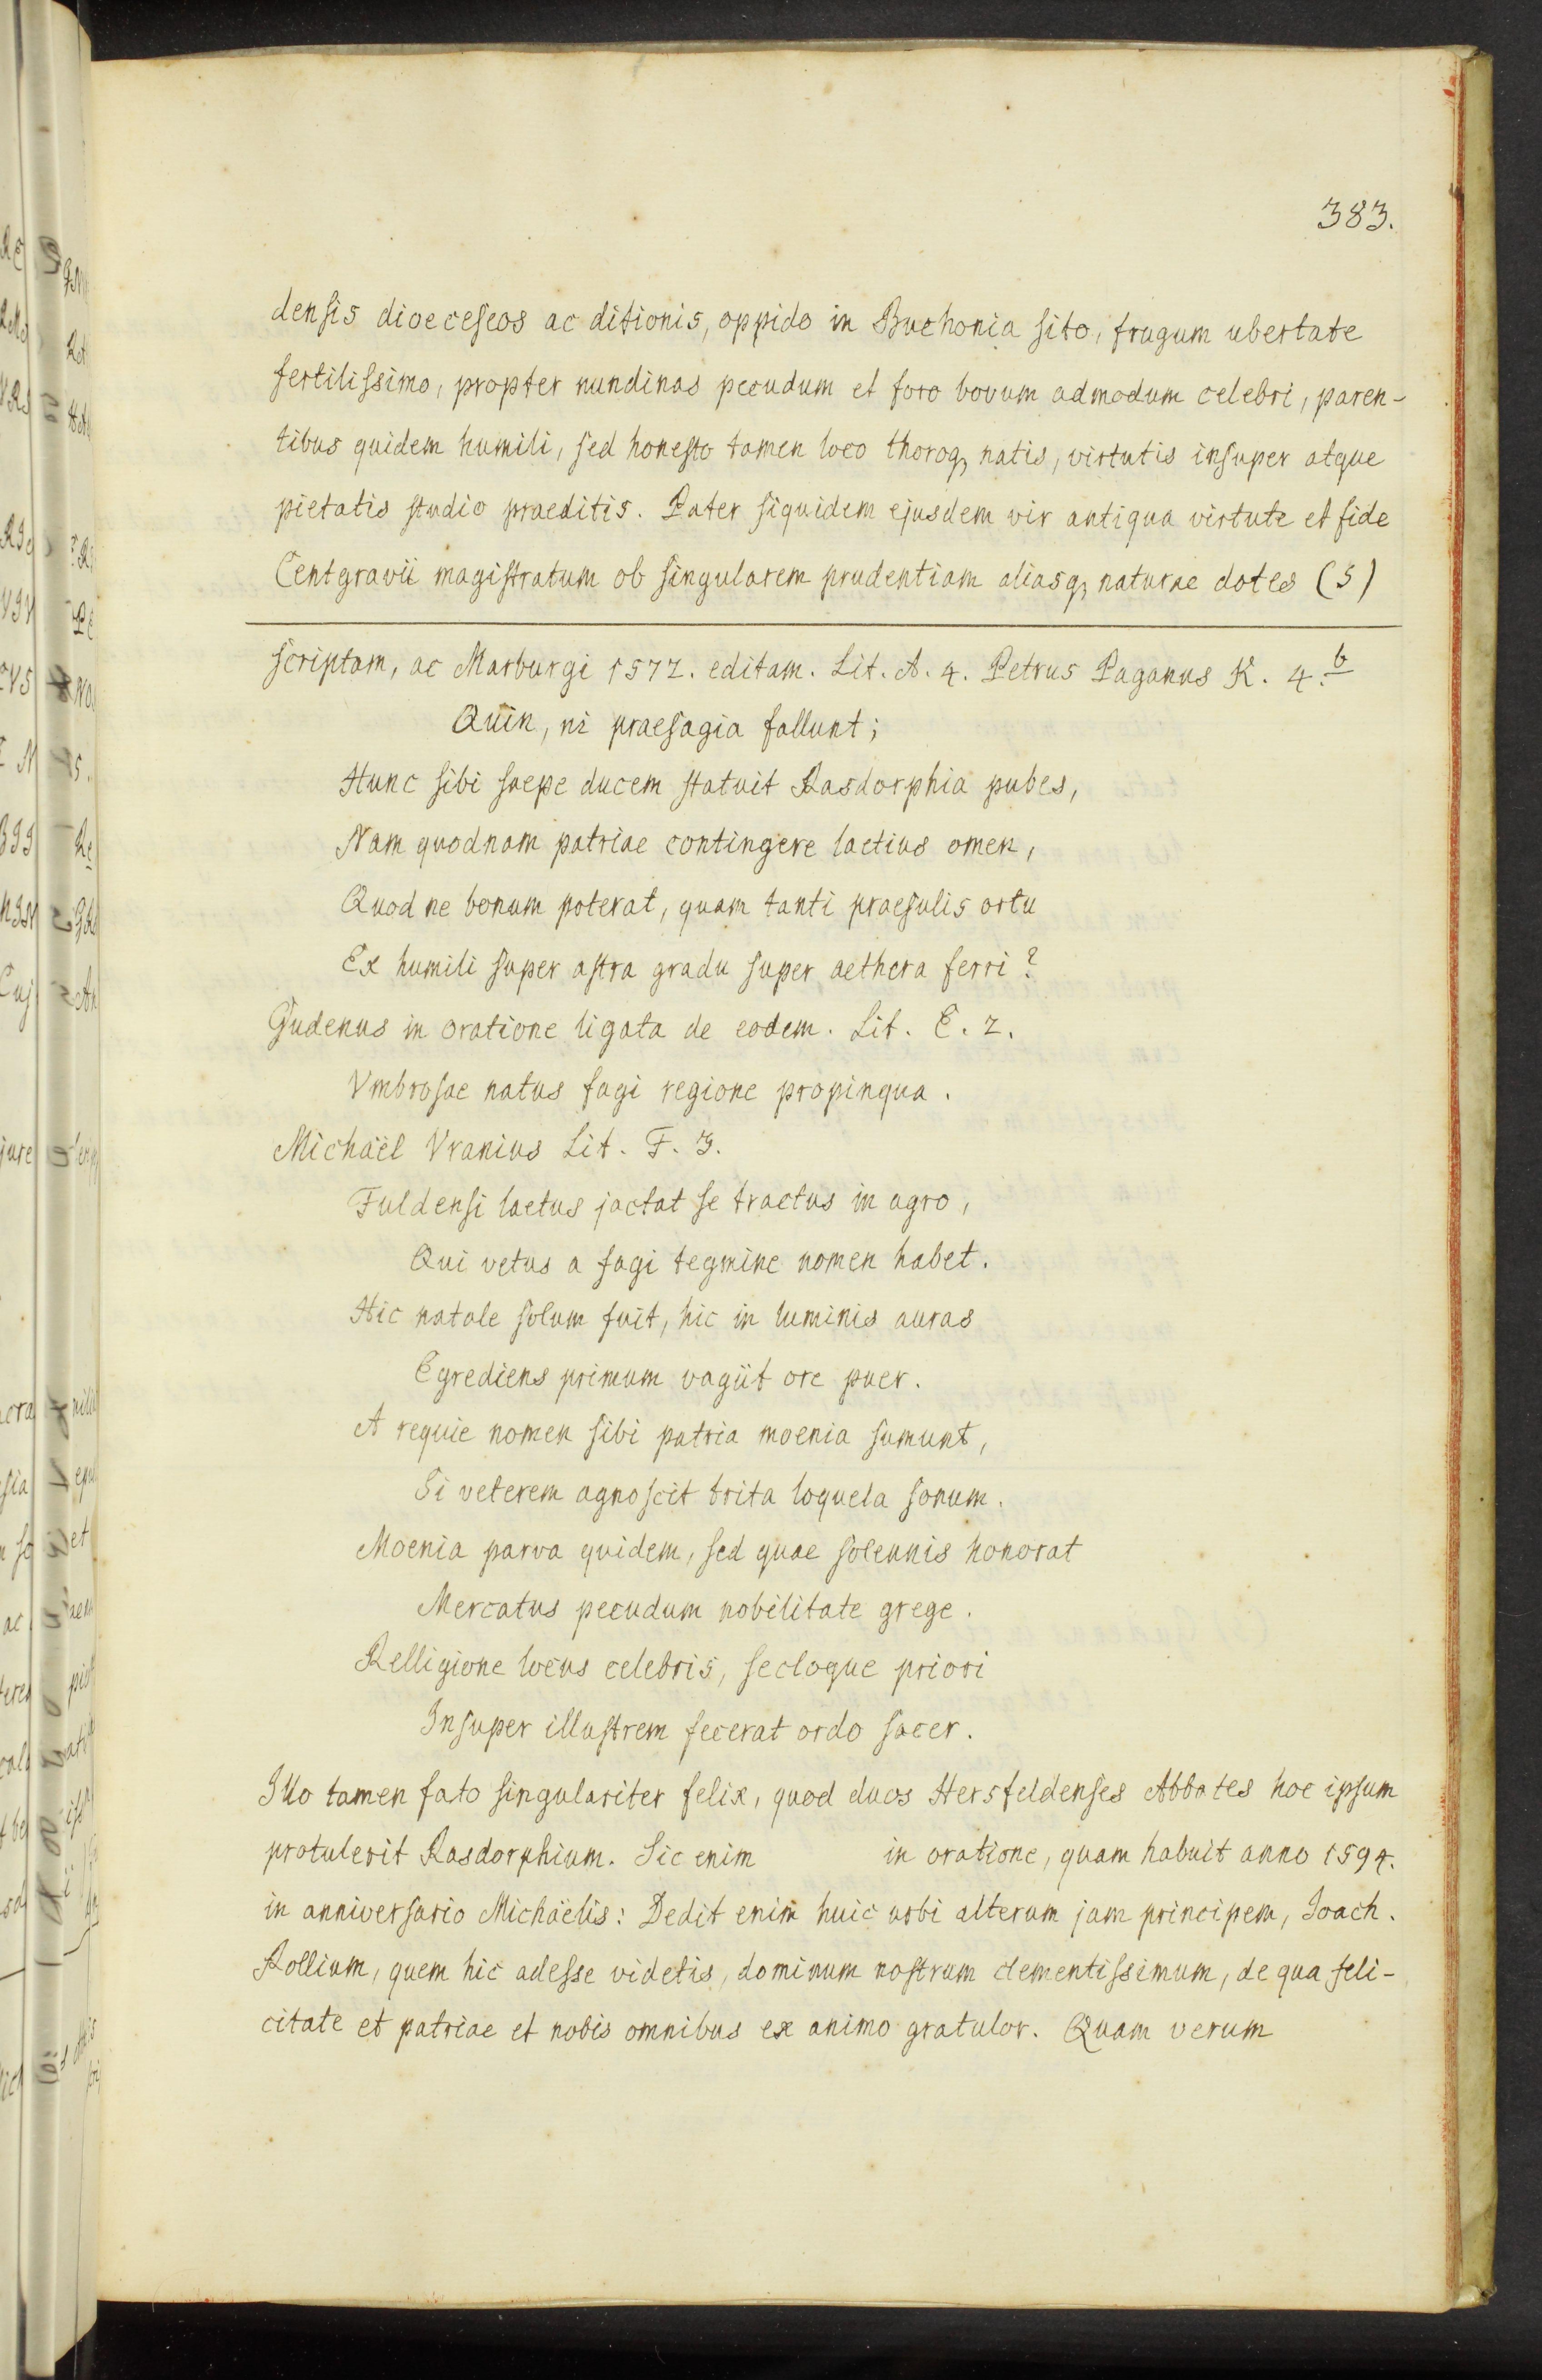 383.
denſis dioeceſeos ac ditionis, oppido in Buchonia ſito, frugum ubertate
fertiliſsimo, propter nundinas pecudum et foro bovum admodum celebri, paren-
tibus quidem humili, ſed honeſto tamen loco thoroq, natis, virtutis inſuper atque
pietatis ſtudio praeditis. Pater ſiquidem ejusdem vir antiqua virtute et fide
Centgravii magiſtratum ob ſingularem prudentiam aliasq, naturae dotes (5)
ſcriptam, ac Marburgi 1572. editam. Lit. A. 4. Petrus Paganus K. 4. b
Quin, ni praeſagia fallunt;
Hunc ſibi ſaepe ducem ſtatuit Rasdorphia pubes,
Nam quodnam patriae contingere laetius omen,
Quod ne bonum poterat, quam tanti praeſulis ortu
Ex humili ſuper aſtra gradu ſuper aethera ferri?
Gudenus in oratione ligata de eodem. Lit. E. 2.
Vmbroſae natus fagi regione propinqua.
Michaël Vranius Lit. F. 3.
Fuldenſi laetus jactat ſe tractus in agro,
Qui vetus a fagi tegmine nomen habet.
Hic natale ſolum fuit, hic in luminis auras
Egrediens primum vagiit ore puer.
A requie nomen ſibi patria moenia ſumunt,
Si veterem agnoſcit trita loquela ſonum.
Moenia parva quidem, ſed quae ſolennis honorat
Mercatus pecudum nobilitate grege.
Relligione locus celebris, ſecloque priori
Inſuper illuſtrem fecerat ordo ſacer.
Illo tamen fato ſingulariter felix, quod duos Hersfeldenſes Abbates hoc ipſum
protulerit Rasdorphium. Sic enim in oratione, quam habuit anno 1594.
in anniverſario Michaëlis: Dedit enim huic urbi alterum jam principem, Joach.
Rollium, quem hic adeſse videtis, dominum noſtrum clementiſsimum, de qua feli-
citate et patriae et nobis omnibus ex animo gratulor. Quam verum